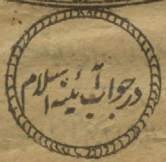 در جواب آئینہ اسلام